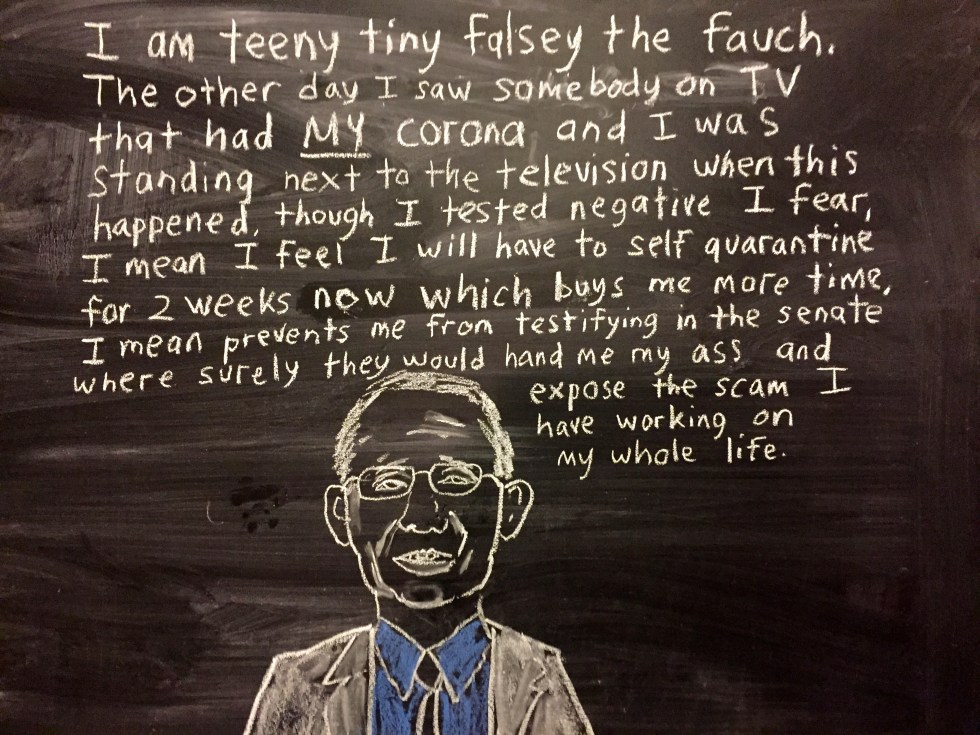 I am teeny tiny falsey the fauch.
The other day I saw somebody on TV
that had MY corona and I was
standing next to the television when this
happened, though I tested negative I fear,
I mean I feel I will have to self quarantine
for 2 weeks now which buys me more time,
I mean prevents me from testifying in the senate
where surely they would hand me my ass and
expose the scam I
have working on
my whole life.